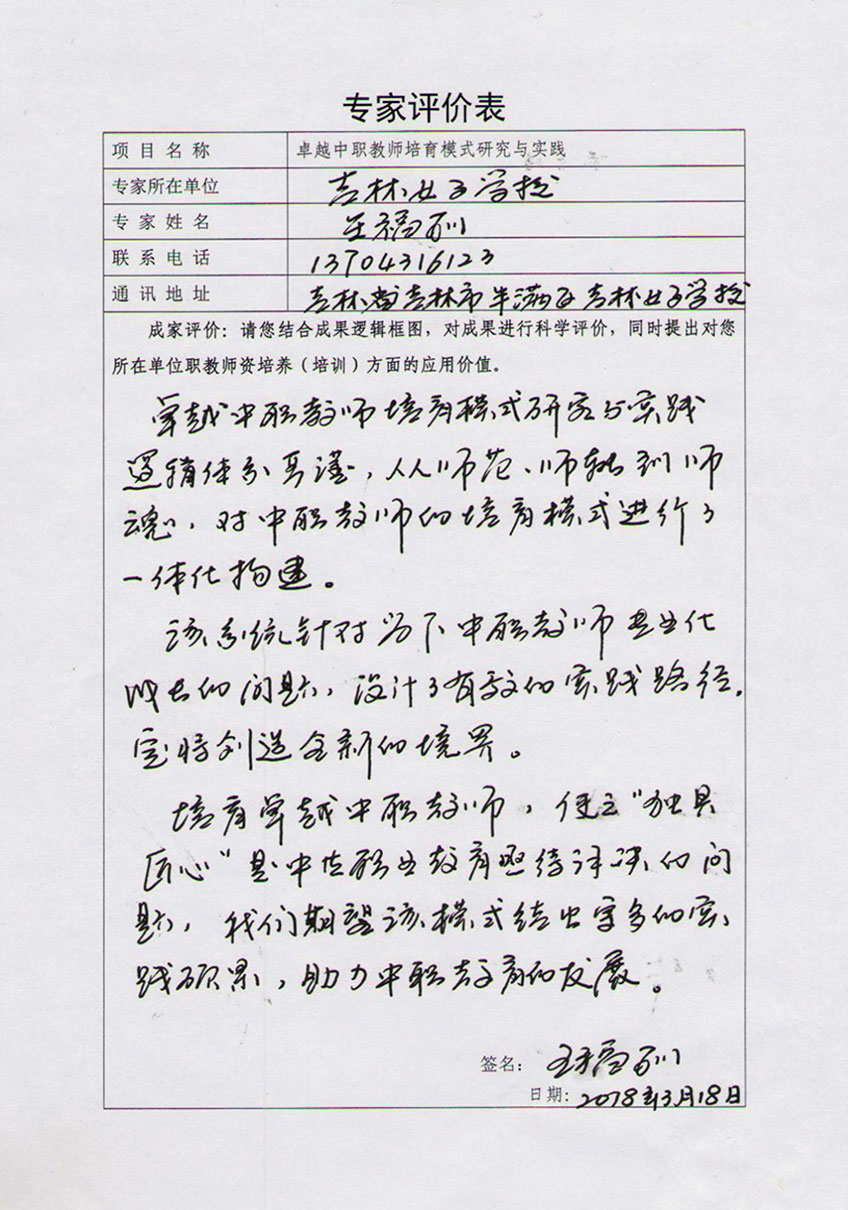 专家评价表
项目名称 卓越中职教师培育模式研究与实践
专家所在单位 吉林女子学校
专家姓名 王福训
联系电话 13704316123
通讯地址 吉林省吉林市 吉林女子学校
成家评价：请您结合成果逻辑框图，对成果进行科学评价，同时提出对您
所在单位职教师资培养（培训）方面的应用价值。
卓越中职教师培育模式研究与实践
逻辑体系 ，从师范、师 到师
魂，对中职教师的培育模式进行了
一体化构建。
该系统针对当下中职教师专业化
成长的问题，设计了有效的实践路径，
定将创造全新的境界。
培育卓越中职教师，使之“独具
匠心”是中等职业教育亟待 的问
题，我们期望该模式结出 多的实
践硕果，助力中职教育的发展。
签名：王福训
日期：2018年3月18日